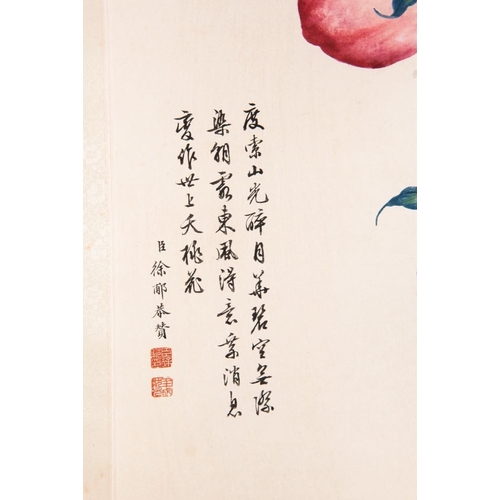 度索山光醉月華碧空無際
染朝霞東風得意乘消息
變作世上夭桃花
臣徐郙恭贊